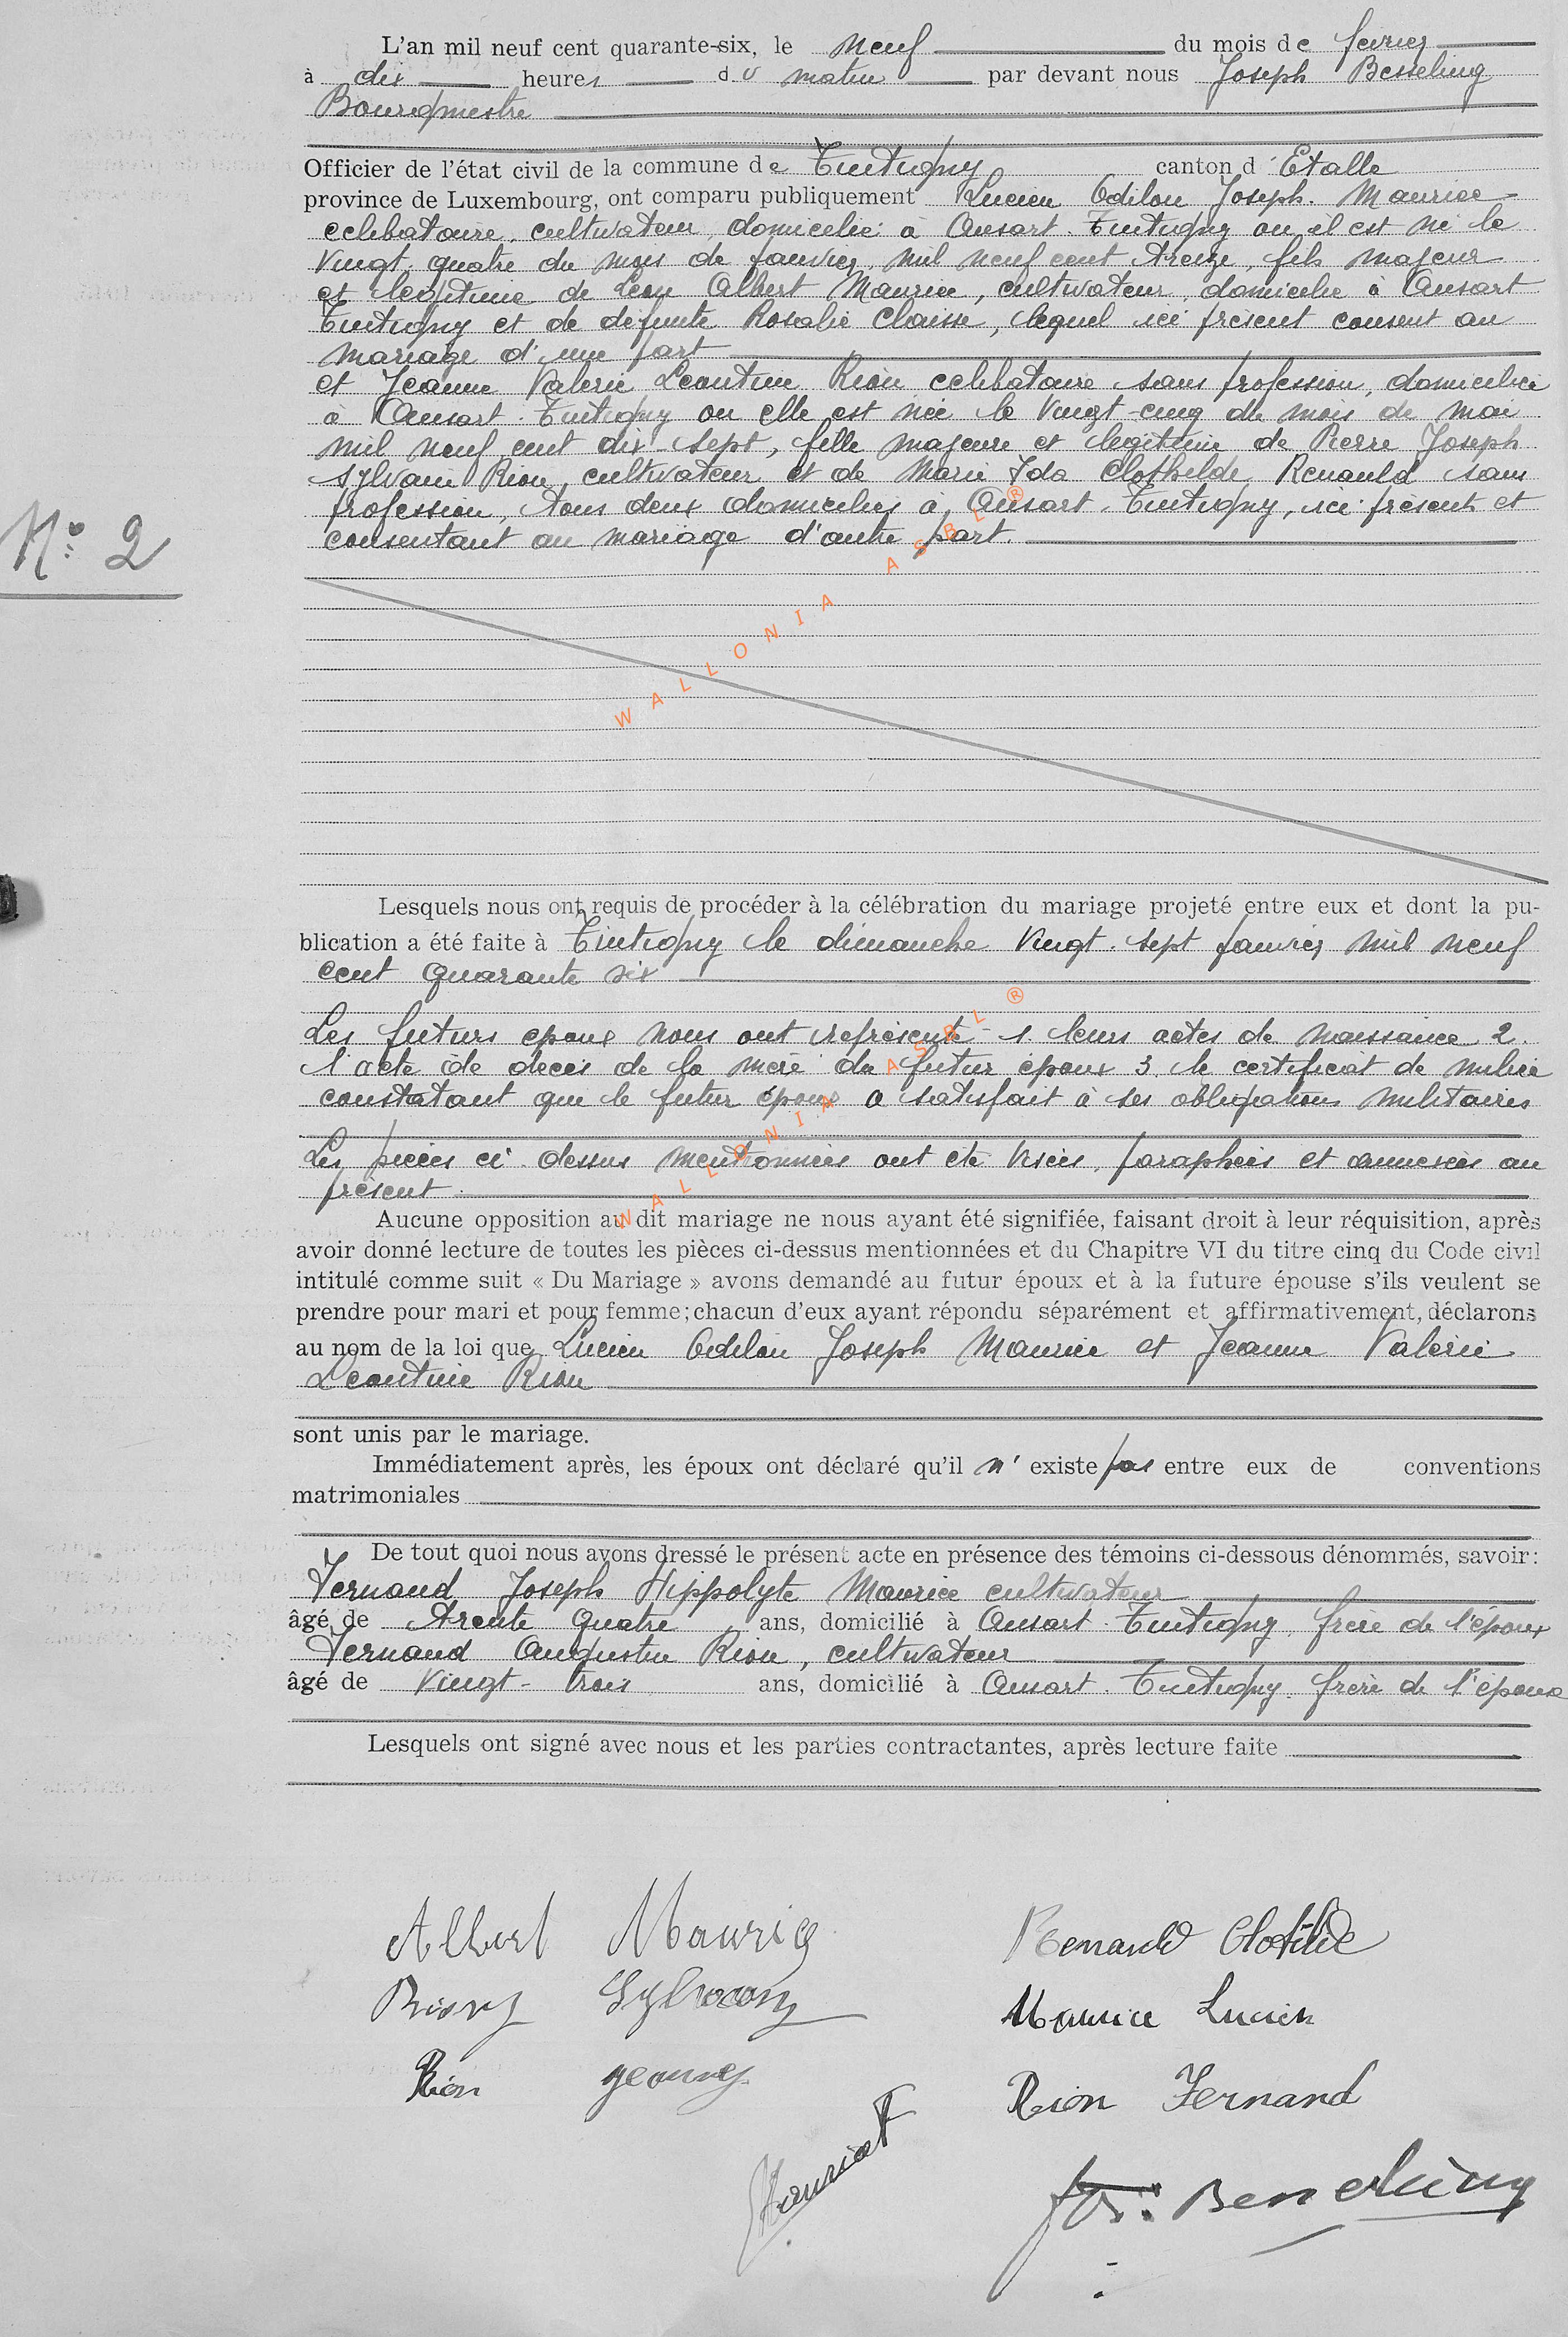 L'an mil neuf cent quarante-six, le neuf du mois de fevrier
à dix heures du matin par devant nous Joseph Besseling
Bourgmestre
Officier de l'état civil de la commune de Tintigny canton d'Etalle
province de Luxembourg, ont comparu publiquement Lucien Odilon Joseph Maurice
celibataire, cultivateur, domicilié à Ansart-Tintigny ou il est né le
vingt quatre du mois de janvier mil neuf cent treize, fils majeur
et legitime de Léon Albert Maurice, cultivateur, domicilie à Ansart
Tintigny et de defunte Rosalie Claisse, lequel ici présent consent au
mariage d'une part
et Jeanne Valerie Leontine Rion celibataire sans profession, domiciliée
à Ansart-Tintigny ou elle est née le vingt-cinq du mois de mai
mil neuf cent dix-sept, fille majeure et légitime de Pierre Joseph
Sylvain Rion, cultivateur et de Marie Ida Clothilde Renauld sans
profession, tous deux domiciliés à Ansart-Tintigny, ici présents et
consentant au mariage d'autre part.
N° 2
WALLONIA ASBL ®
Lesquels nous ont requis de procéder à la célébration du mariage projeté entre eux et dont la pu-
blication a été faite à Tintigny le dimanche vingt-sept janvier mil neuf
cent quarante six
Les futurs epoux nous ont représenté 1. leurs actes de naissance 2.
l'acte de décès de la mère du futur époux 3. le certificat de milice
constatant que le futur époux a satisfait à ses obligations militaires
Les pièces ci-dessus mentionnées ont été visées, paraphées et annexées au
présent.
WALLONIA ASBL ®
Aucune opposition au dit mariage ne nous ayant été signifiée, faisant droit à leur réquisition, après
avoir donné lecture de toutes les pièces ci-dessus mentionnées et du Chapitre VI du titre cinq du Code civil
intitulé comme suit « Du Mariage » avons demandé au futur époux et à la future épouse s'ils veulent se
prendre pour mari et pour femme; chacun d'eux ayant répondu séparément et affirmativement, déclarons
au nom de la loi que Lucien Odilon Joseph Maurice et Jeanne Valérie
Leontine Rion
sont unis par le mariage.
Immédiatement après, les époux ont déclaré qu'il n'existe pas entre eux de conventions
matrimoniales
De tout quoi nous avons dressé le présent acte en présence des témoins ci-dessous dénommés, savoir:
Fernand Joseph Hippolyte Maurice cultivateur
âgé de trente quatre ans, domicilié à Ansart-Tintigny, frère de l'époux
Fernand Augustin Rion, cultivateur
âgé de vingt-trois ans, domicilié à Ansart-Tintigny, frère de l'épouse
Lesquels ont signé avec nous et les parties contractantes, après lecture faite
Albert Maurice Renauld Clotilde
Rion Sylvain Maurice Lucien
Rion Jeanne Rion Fernand
Maurice F
Jos. Besseling